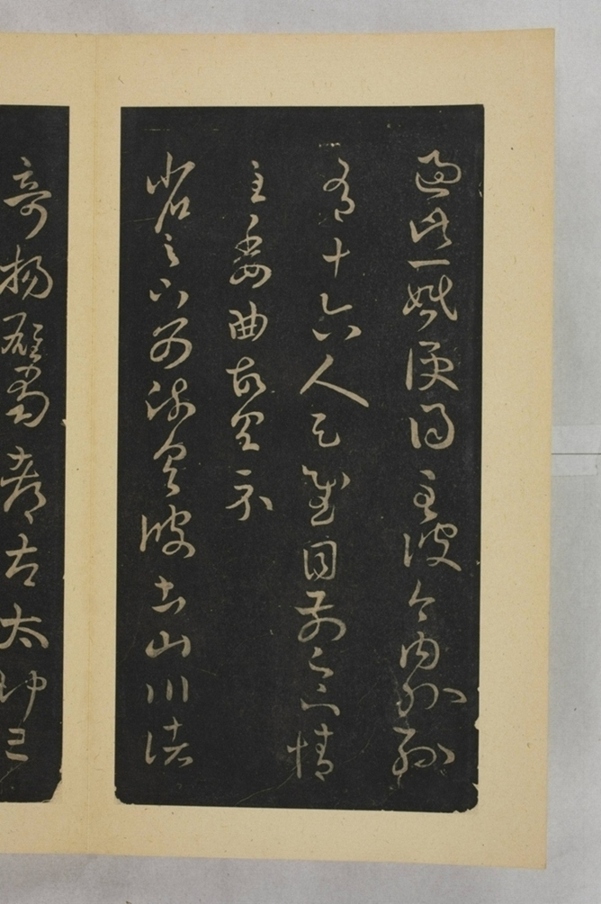 過此一婚便得至彼今内外孫
有十六人足慰目前足下情
至委曲故具示
省足下別疏具彼土山川諸
奇揚雄蜀都左太沖三